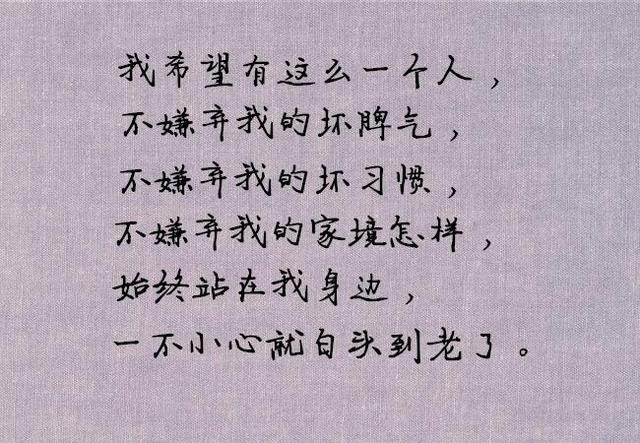 我希望有这么一个人，
不嫌弃我的坏脾气，
不嫌弃我的坏习惯，
不嫌弃我的家境怎样，
始终站在我身边，
一不小心就白头到老了。